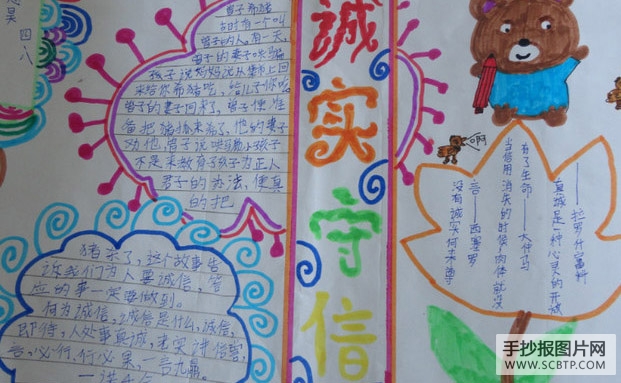 昊
四八
古时有一个叫
曾子的人,有一天,
曾子的妻子哄骗
孩子说妈妈说从集市上回
来给你
曾子的妻子回来了,曾子便准
备把猪
他的妻子
劝他,曾子说哄骗小孩子
不是来教育孩子为正人
君子的办法,便真
的把
猪杀了,这个故事告
诉我们为人要诚信,答
应的事一定要做到。
何为诚信,诚信是什么,诚信,
即待人处事真诚,老实讲信誉,
言必行,行必果,一言九鼎,
一诺千金
誠
实
守
信
啊
——拉罗什富科
真诚是一种心灵的开放
有了生命——大仲马
当信用消失的时候,肉体就没
言——西塞罗
没有誠实何来尊
手抄报图片网
WWW.SCBTP.COM